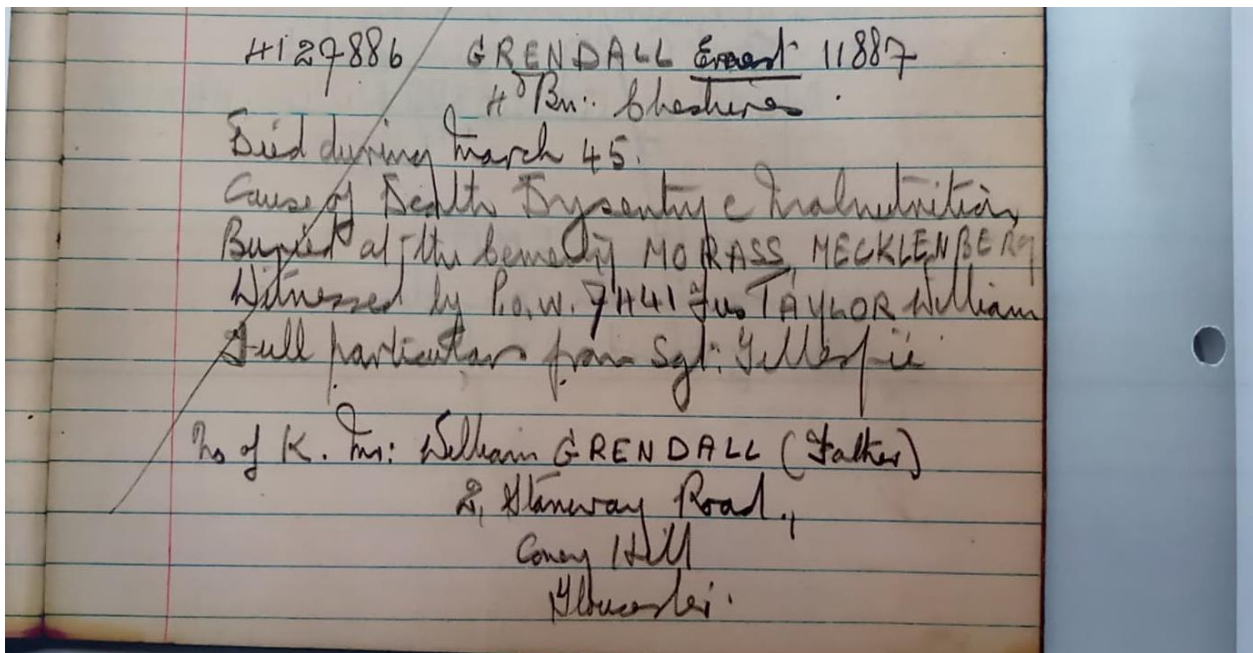 4127886 GRENDALL Ernest 11887
4th Bn: Cheshires.
Died during March 45.
Cause of Death Dysentry c Malnutrition
Buried at the Cemetry MORASS MECKLENBERG
Witnessed by P.o.W. 7441 Fus TAYLOR William
Full particulars from Sgt: Gillespie
N of K. Mr: William GRENDALL (Father)
2, Stanway Road.,
Coney Hill
Gloucester.